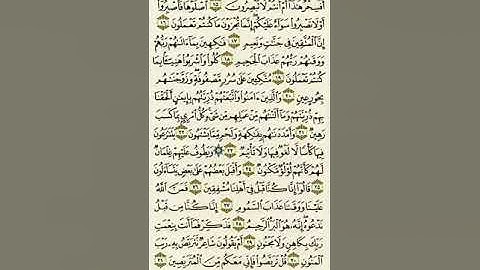 أَفَسِحْرٌ هَٰذَا أَمْ أَنتُمْ لَا تُبْصِرُونَ ١٥ اصْلَوْهَا فَاصْبِرُوا
أَوْ لَا تَصْبِرُوا سَوَاءٌ عَلَيْكُمْ إِنَّمَا تُجْزَوْنَ مَا كُنتُمْ تَعْمَلُونَ ١٦
إِنَّ الْمُتَّقِينَ فِي جَنَّاتٍ وَنَعِيمٍ ١٧ فَاكِهِينَ بِمَا آتَاهُمْ رَبُّهُمْ
وَوَقَاهُمْ رَبُّهُمْ عَذَابَ الْجَحِيمِ ١٨ كُلُوا وَاشْرَبُوا هَنِيئًا بِمَا
كُنتُمْ تَعْمَلُونَ ١٩ مُتَّكِئِينَ عَلَىٰ سُرُرٍ مَّصْفُوفَةٍ وَزَوَّجْنَاهُم
بِحُورٍ عِينٍ ٢٠ وَالَّذِينَ آمَنُوا وَاتَّبَعَتْهُمْ ذُرِّيَّتُهُم بِإِيمَانٍ أَلْحَقْنَا
بِهِمْ ذُرِّيَّتَهُمْ وَمَا أَلَتْنَاهُم مِّنْ عَمَلِهِم مِّن شَيْءٍ كُلُّ امْرِئٍ بِمَا كَسَبَ
رَهِينٌ ٢١ وَأَمْدَدْنَاهُم بِفَاكِهَةٍ وَلَحْمٍ مِّمَّا يَشْتَهُونَ ٢٢ يَتَنَازَعُونَ
فِيهَا كَأْسًا لَّا لَغْوٌ فِيهَا وَلَا تَأْثِيمٌ ٢٣ وَيَطُوفُ عَلَيْهِمْ غِلْمَانٌ
لَّهُمْ كَأَنَّهُمْ لُؤْلُؤٌ مَّكْنُونٌ ٢٤ وَأَقْبَلَ بَعْضُهُمْ عَلَىٰ بَعْضٍ يَتَسَاءَلُونَ
٢٥ قَالُوا إِنَّا كُنَّا قَبْلُ فِي أَهْلِنَا مُشْفِقِينَ ٢٦ فَمَنَّ اللَّهُ
عَلَيْنَا وَوَقَانَا عَذَابَ السَّمُومِ ٢٧ إِنَّا كُنَّا مِن قَبْلُ
نَدْعُوهُ إِنَّهُ هُوَ الْبَرُّ الرَّحِيمُ ٢٨ فَذَكِّرْ فَمَا أَنتَ بِنِعْمَتِ
رَبِّكَ بِكَاهِنٍ وَلَا مَجْنُونٍ ٢٩ أَمْ يَقُولُونَ شَاعِرٌ نَّتَرَبَّصُ بِهِ رَيْبَ
الْمَنُونِ ٣٠ قُلْ تَرَبَّصُوا فَإِنِّي مَعَكُم مِّنَ الْمُتَرَبِّصِينَ ٣١